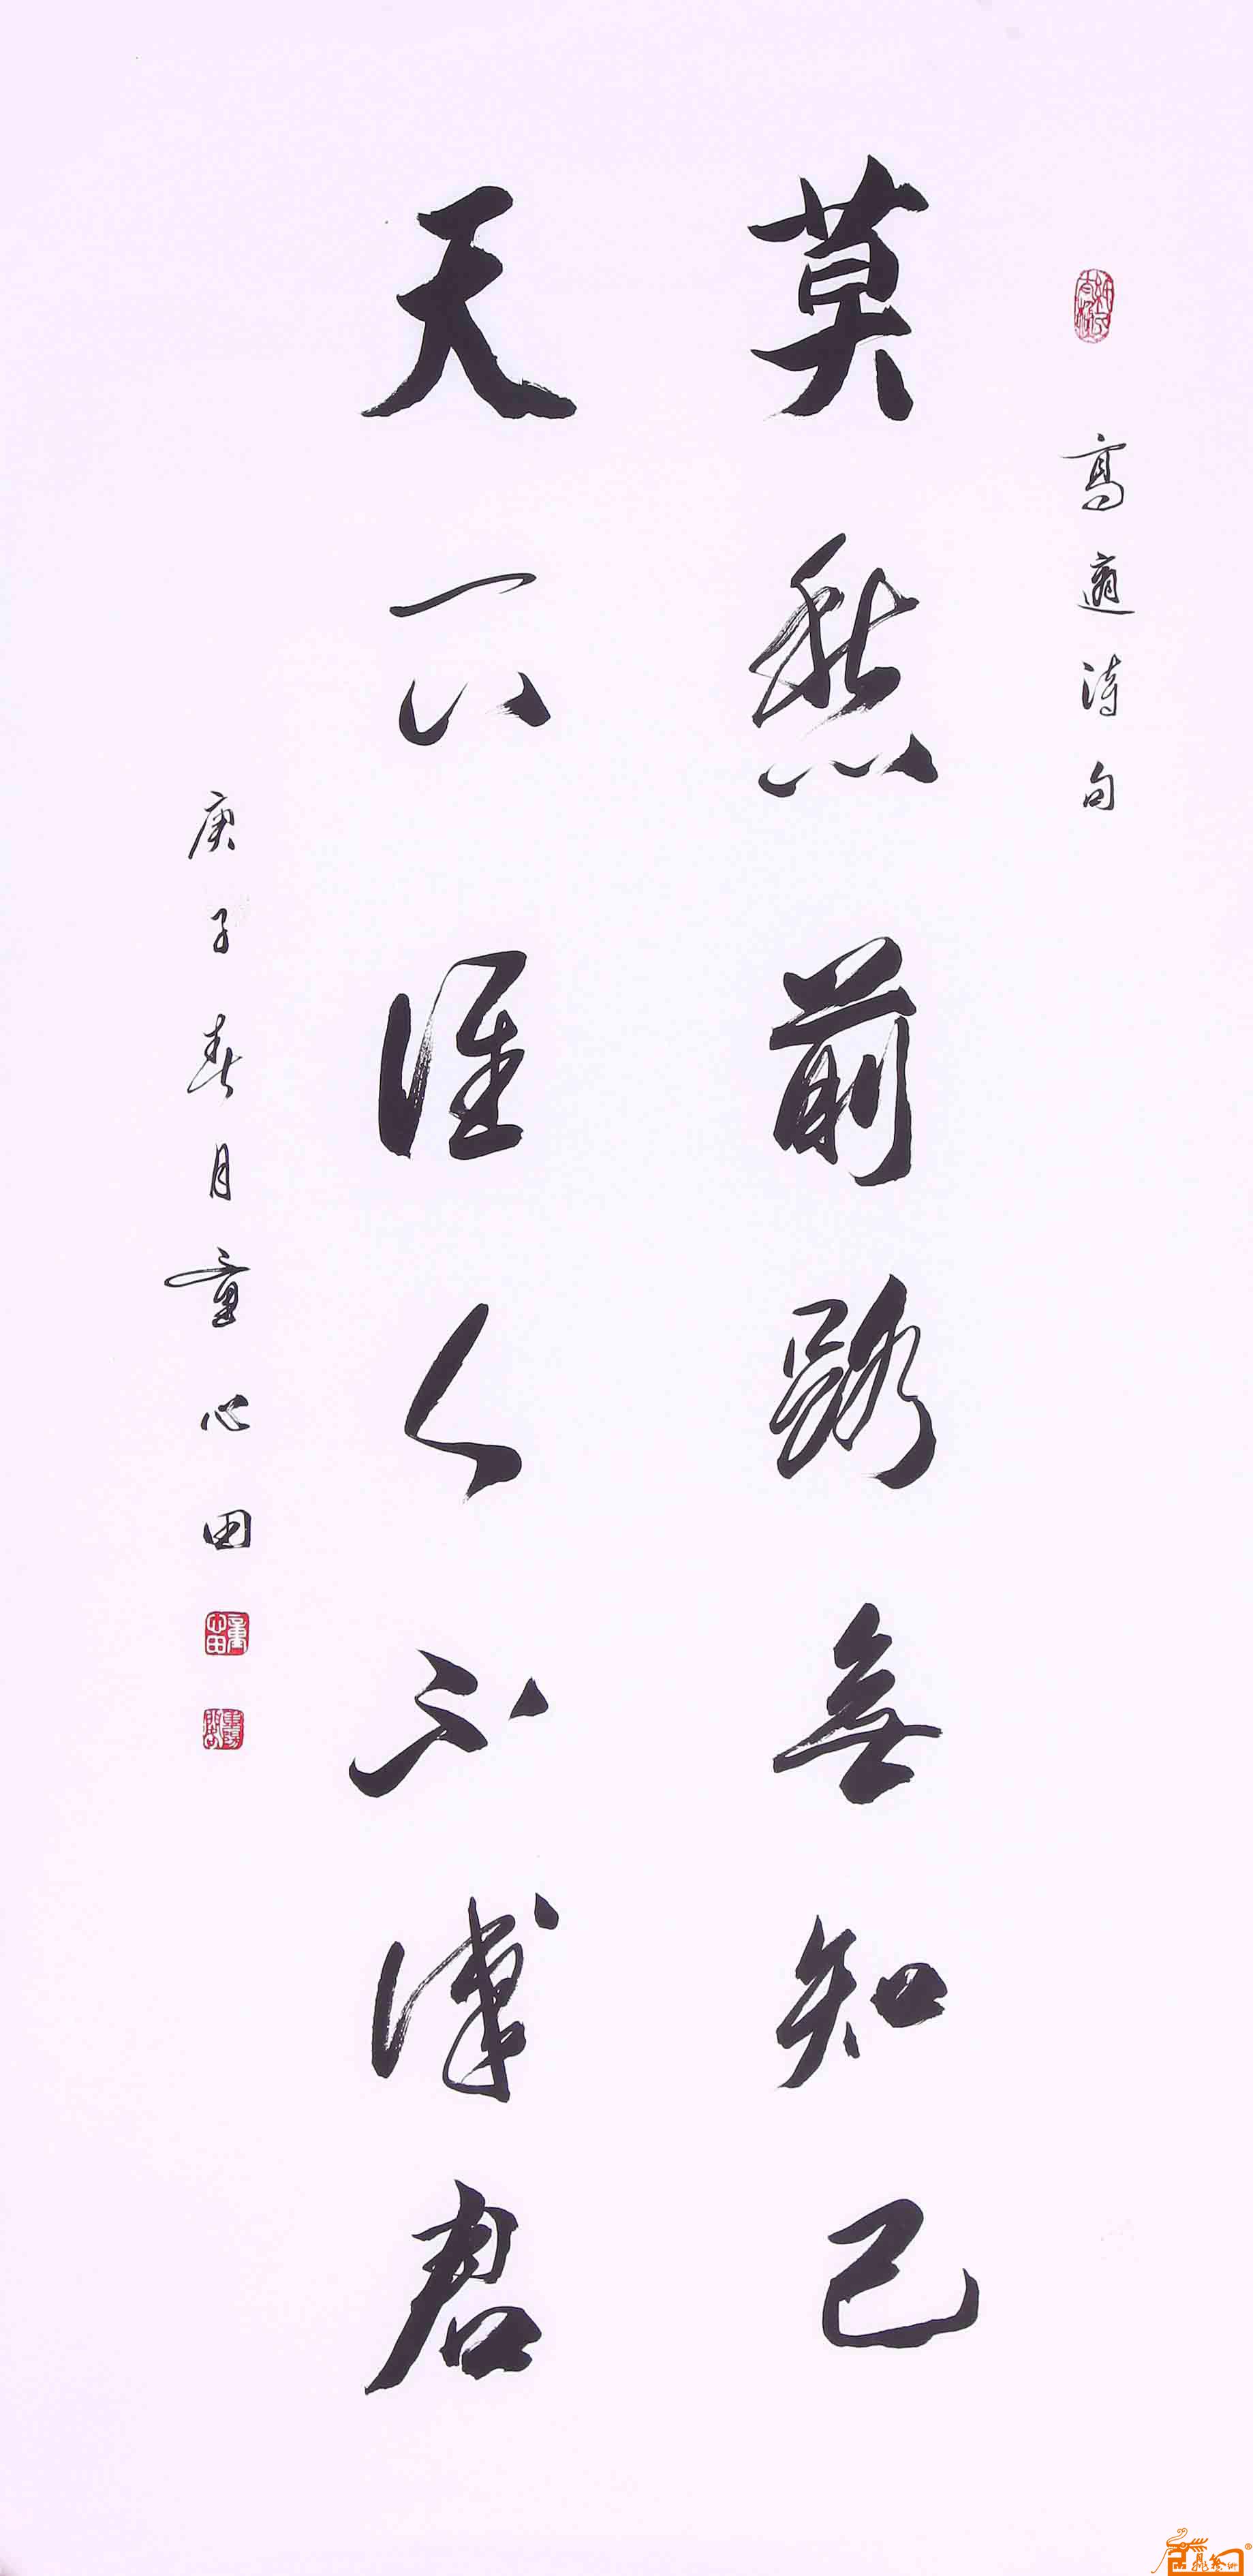 高適詩句
莫愁前路無知己
天下誰人不識君
庚子春月童心田